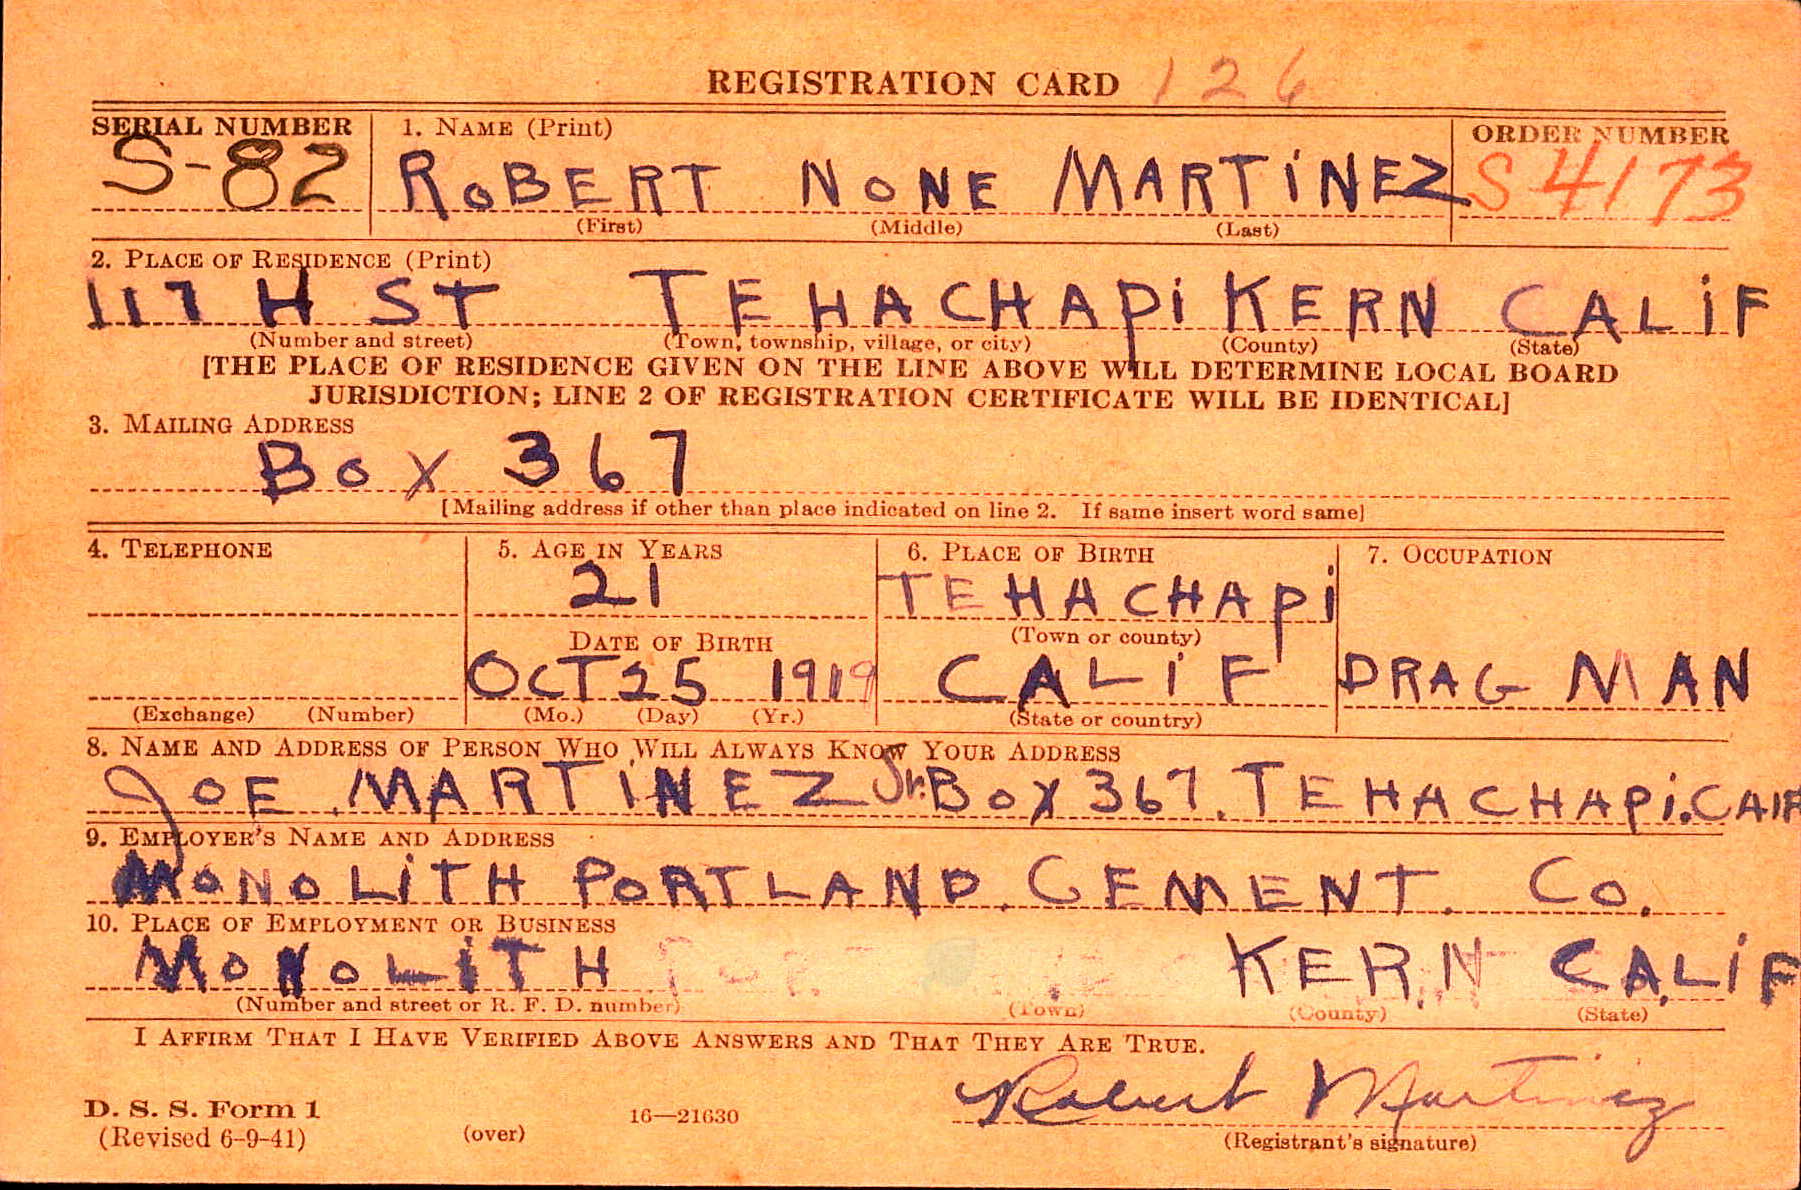 REGISTRATION CARD 126
SERIAL NUMBER 1. NAME (Print) ORDER NUMBER
S-82 ROBERT NONE MARTINEZ S4173
(First) (Middle) (Last)
2. PLACE OF RESIDENCE (Print)
117 H ST TEHACHAPI KERN CALIF
(Number and street) (Town, township, village, or city) (County) (State)
[THE PLACE OF RESIDENCE GIVEN ON THE LINE ABOVE WILL DETERMINE LOCAL BOARD
JURISDICTION; LINE 2 OF REGISTRATION CERTIFICATE WILL BE IDENTICAL]
3. MAILING ADDRESS
BOX 367
[Mailing address if other than place indicated on line 2. If same insert word same]
4. TELEPHONE 5. AGE IN YEARS 6. PLACE OF BIRTH 7. OCCUPATION
21 TEHACHAPI
DATE OF BIRTH (Town or county)
OCT 25 1919 CALIF DRAG MAN
(Exchange) (Number) (Mo.) (Day) (Yr.) (State or country)
8. NAME AND ADDRESS OF PERSON WHO WILL ALWAYS KNOW YOUR ADDRESS
JOE MARTINEZ Sr. BOX 367. TEHACHAPI. CAIF
9. EMPLOYER'S NAME AND ADDRESS
MONOLITH PORTLAND. CEMENT. CO.
10. PLACE OF EMPLOYMENT OR BUSINESS
MONOLITH KERN CALIF
(Number and street or R. F. D. number) (Town) (County) (State)
I AFFIRM THAT I HAVE VERIFIED ABOVE ANSWERS AND THAT THEY ARE TRUE.
Robert Martinez
D. S. S. Form 1
(Revised 6-9-41) (over) 16—21630 (Registrant's signature)